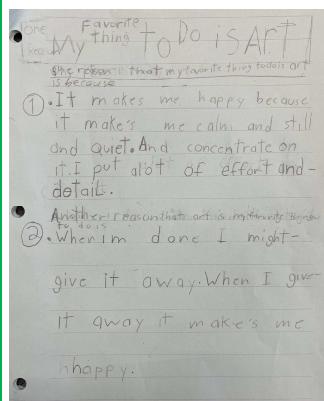 one
Reason
My Favorite thing To Do is ArT
One reason that my favorite thing todo is art
is because
1. It makes me happy because
it make's me calm and still
and quiet. And concentrate on
it. I put alot of effort and-
detail.
Another reason that art is my favorite thing
to do is
2. When im done I might-
give it away. When I give-
it away it make's me
hhappy.